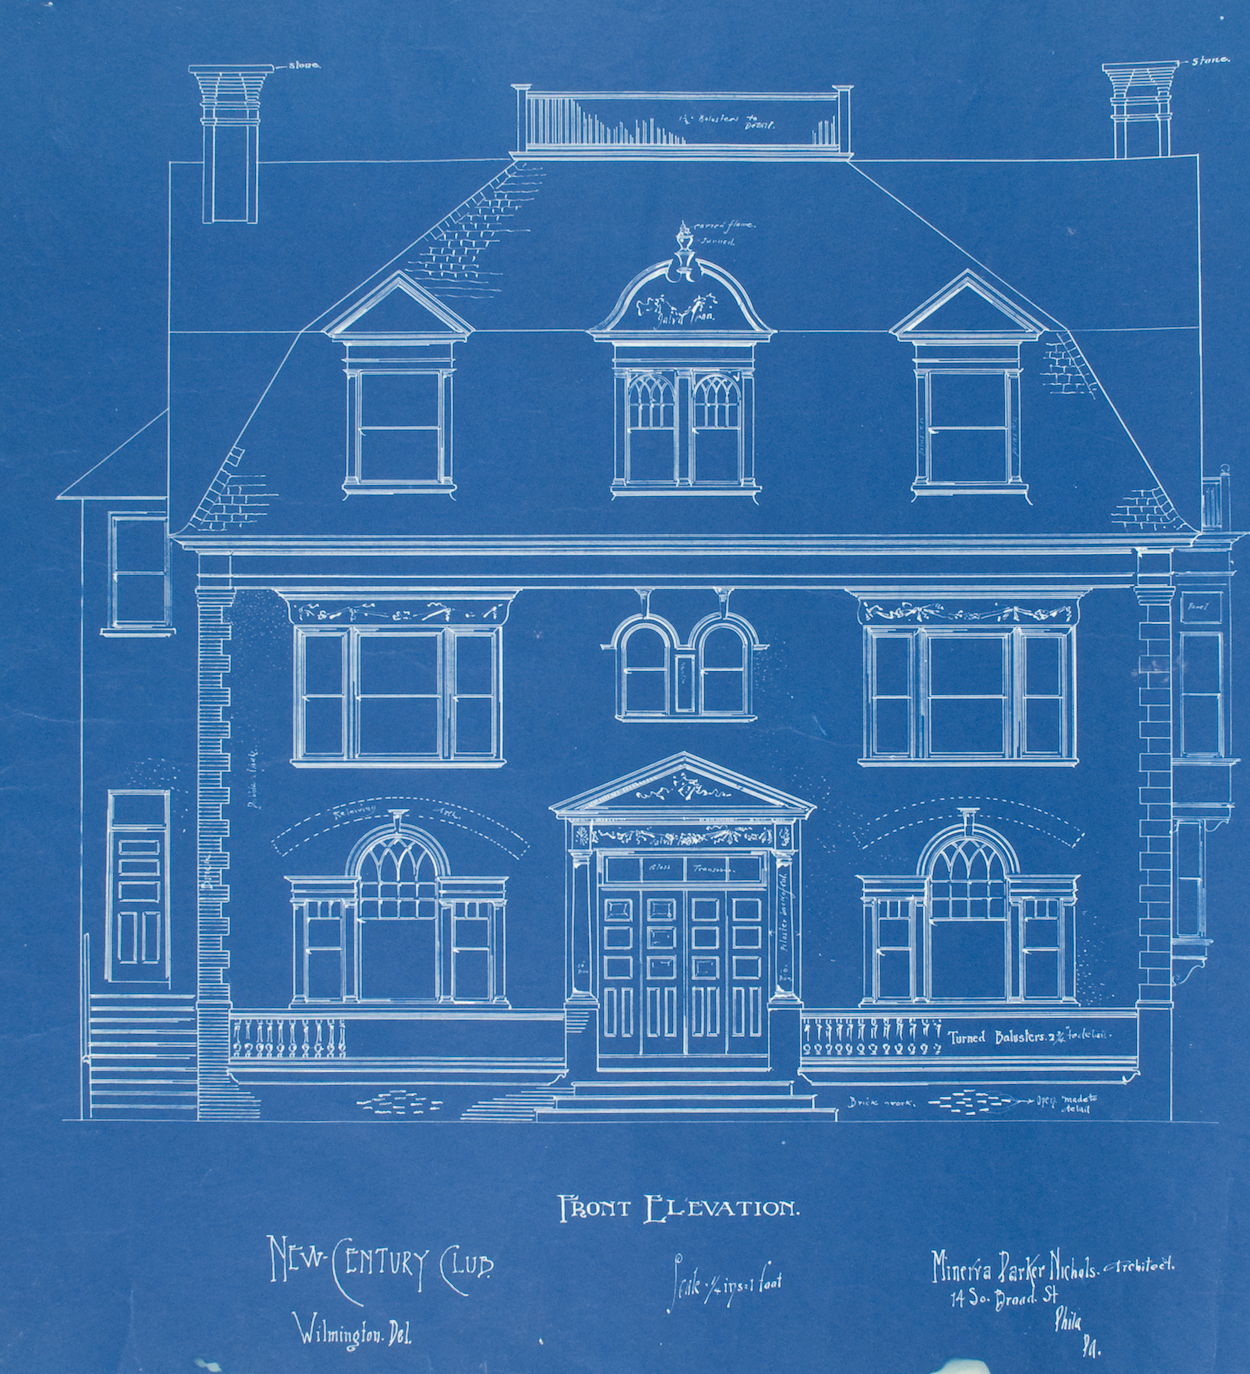 stone.
stone.
Balusters to
Detail.
carved flame.
turned.
Panel
Relieving Arch
Glass Transom.
Turned Balusters. 2¾" to detail.
Brick work.
Open made to
detail
FRONT ELEVATION.
NEW-CENTURY CLUB.
Wilmington. Del.
Scale ¼ ins=1 foot
Minerva Parker Nichols. Architect.
14 So. Broad. St
Phila
Pa.